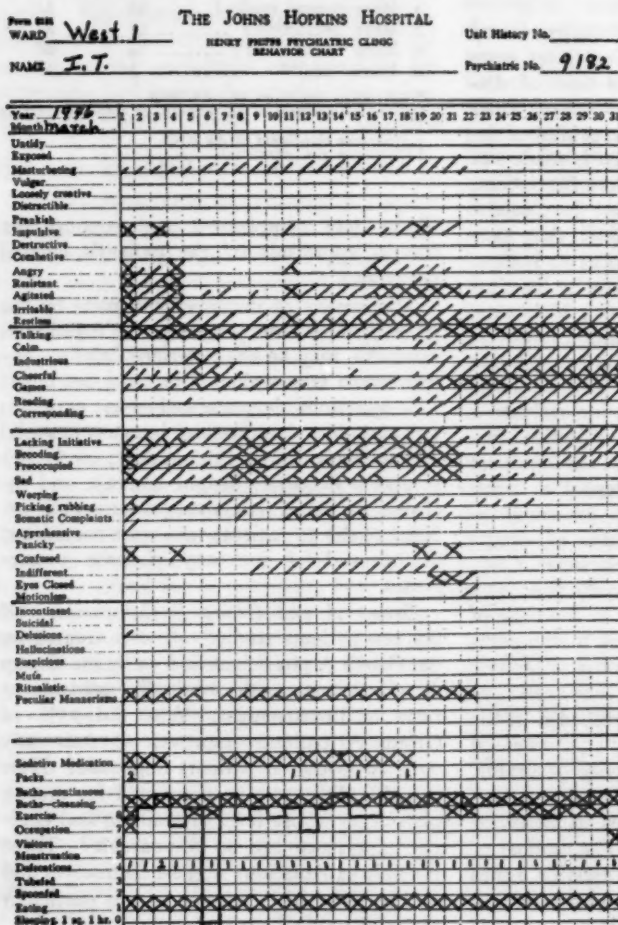 Form
THE JOHNS HOPKINS HOSPITAL
WARD West 1
HENRY PHIPPS PSYCHIATRIC CLINIC
BEHAVIOR CHART
Unit History No.
NAME I.T.
Psychiatric No. 9182
Year 1946 1 2 3 4 5 6 7 8 9 10 11 12 13 14 15 16 17 18 19 20 21 22 23 24 25 26 27 28 29 30 31
Month March
Untidy
Exposed
Masturbating
Vulgar
Loosely creative
Distractible
Prankish
Impulsive
Destructive
Combative
Angry
Resistant
Agitated
Irritable
Restless
Talking
Calm
Industrious
Cheerful
Games
Reading
Corresponding
Lacking Initiative
Brooding
Preoccupied
Sad
Weeping
Picking, rubbing
Somatic Complaints
Apprehensive
Panicky
Confused
Indifferent
Eyes Closed
Motionless
Incontinent
Suicidal
Delusions
Hallucinations
Suspicious
Mute
Ritualistic
Peculiar Mannerisms
Sedative Medication
Packs 2 1 1 1
Baths—continuous
Baths—cleansing
Exercise 8
Occupation 7
Visitors 6
Menstruation 5
Defecations 4
Tubefed 3
Spoonfed 2
Eating 1
Sleeping, 1 sq. 1 hr. 0